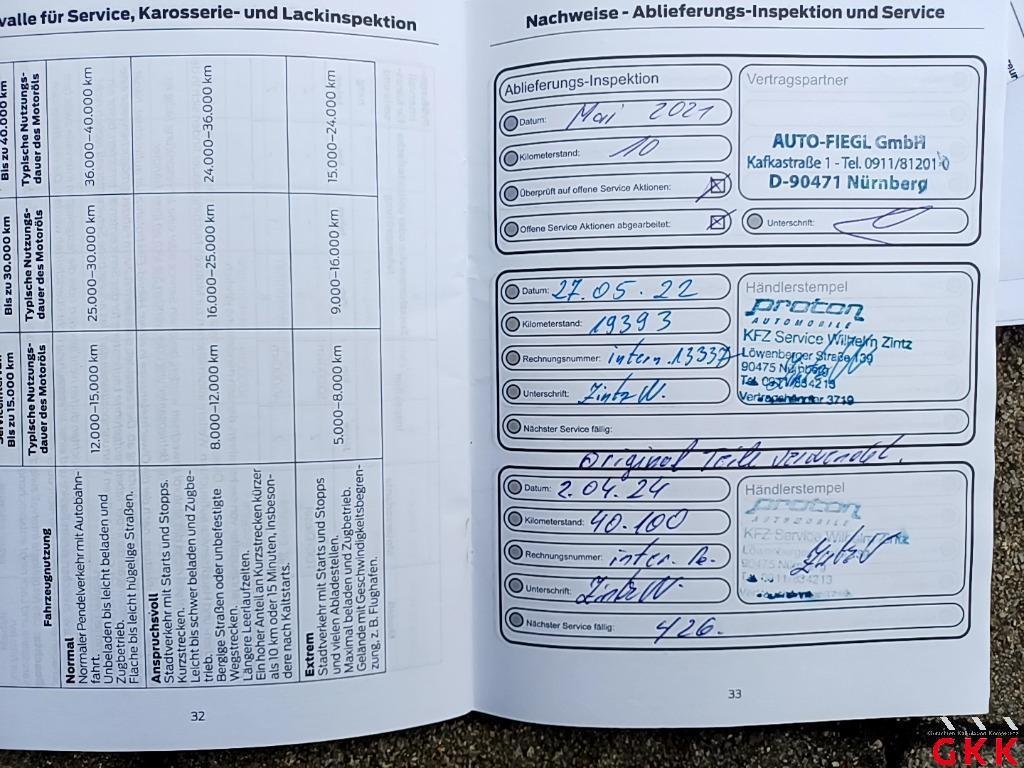 valle für Service, Karosserie- und Lackinspektion
Fahrzeugnutzung
Bis zu 15.000 km
Typische Nutzungs-
dauer des Motoröls
Bis zu 30.000 km
Typische Nutzungs-
dauer des Motoröls
Bis zu 40.000 km
Typische Nutzungs-
dauer des Motoröls
Normal
Normaler Pendelverkehr mit Autobahn-
fahrt.
Unbeladen bis leicht beladen und
Zugbetrieb.
Flache bis leicht hügelige Straßen.
12.000–15.000 km
25.000–30.000 km
36.000–40.000 km
Anspruchsvoll
Stadtverkehr mit Starts und Stopps.
Kurzstrecken.
Leicht bis schwer beladen und Zugbe-
trieb.
Bergige Straßen oder unbefestigte
Wegstrecken.
Längere Leerlaufzeiten.
Ein hoher Anteil an Kurzstrecken kürzer
als 10 km oder 15 Minuten, insbeson-
dere nach Kaltstarts.
8.000–12.000 km
16.000–25.000 km
24.000–36.000 km
Extrem
Stadtverkehr mit Starts und Stopps
und vielen Abladestellen.
Maximal beladen und Zugbetrieb.
Gelände mit Geschwindigkeitsbegren-
zung, z. B. Flughafen.
5.000–8.000 km
9.000–16.000 km
15.000–24.000 km
32
Nachweise - Ablieferungs-Inspektion und Service
Ablieferungs-Inspektion
Datum: Mai 2021
Kilometerstand: 10
Überprüft auf offene Service Aktionen:
Offene Service Aktionen abgearbeitet:
Vertragspartner
AUTO-FIEGL GmbH
Kafkastraße 1 - Tel. 0911/81201-0
D-90471 Nürnberg
Unterschrift:
Datum: 27.05.22
Kilometerstand: 19393
Rechnungsnummer: intern. 13337
Unterschrift: Zintz W.
Nächster Service fällig:
Händlerstempel
proton
AUTOMOBILE
KFZ Service Wilhelm Zintz
Löwenberger Straße 139
90475 Nürnberg
Tel. 0911/834213
Vertragshändler 3719
Original Teile verwendet.
Datum: 2.04.24
Kilometerstand: 40.100
Rechnungsnummer: inter. Re.
Unterschrift: Zintz W.
Nächster Service fällig: 426.
Händlerstempel
proton
AUTOMOBILE
KFZ Service Wilhelm Zintz
0911/834213
33
GKK